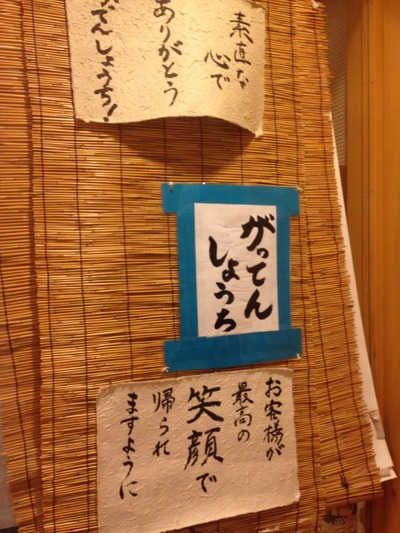 素直な
心で
ありがとう
がってんしょうち！
がってん
しょうち
お客様が
最高の
笑顔で
帰られ
ますように